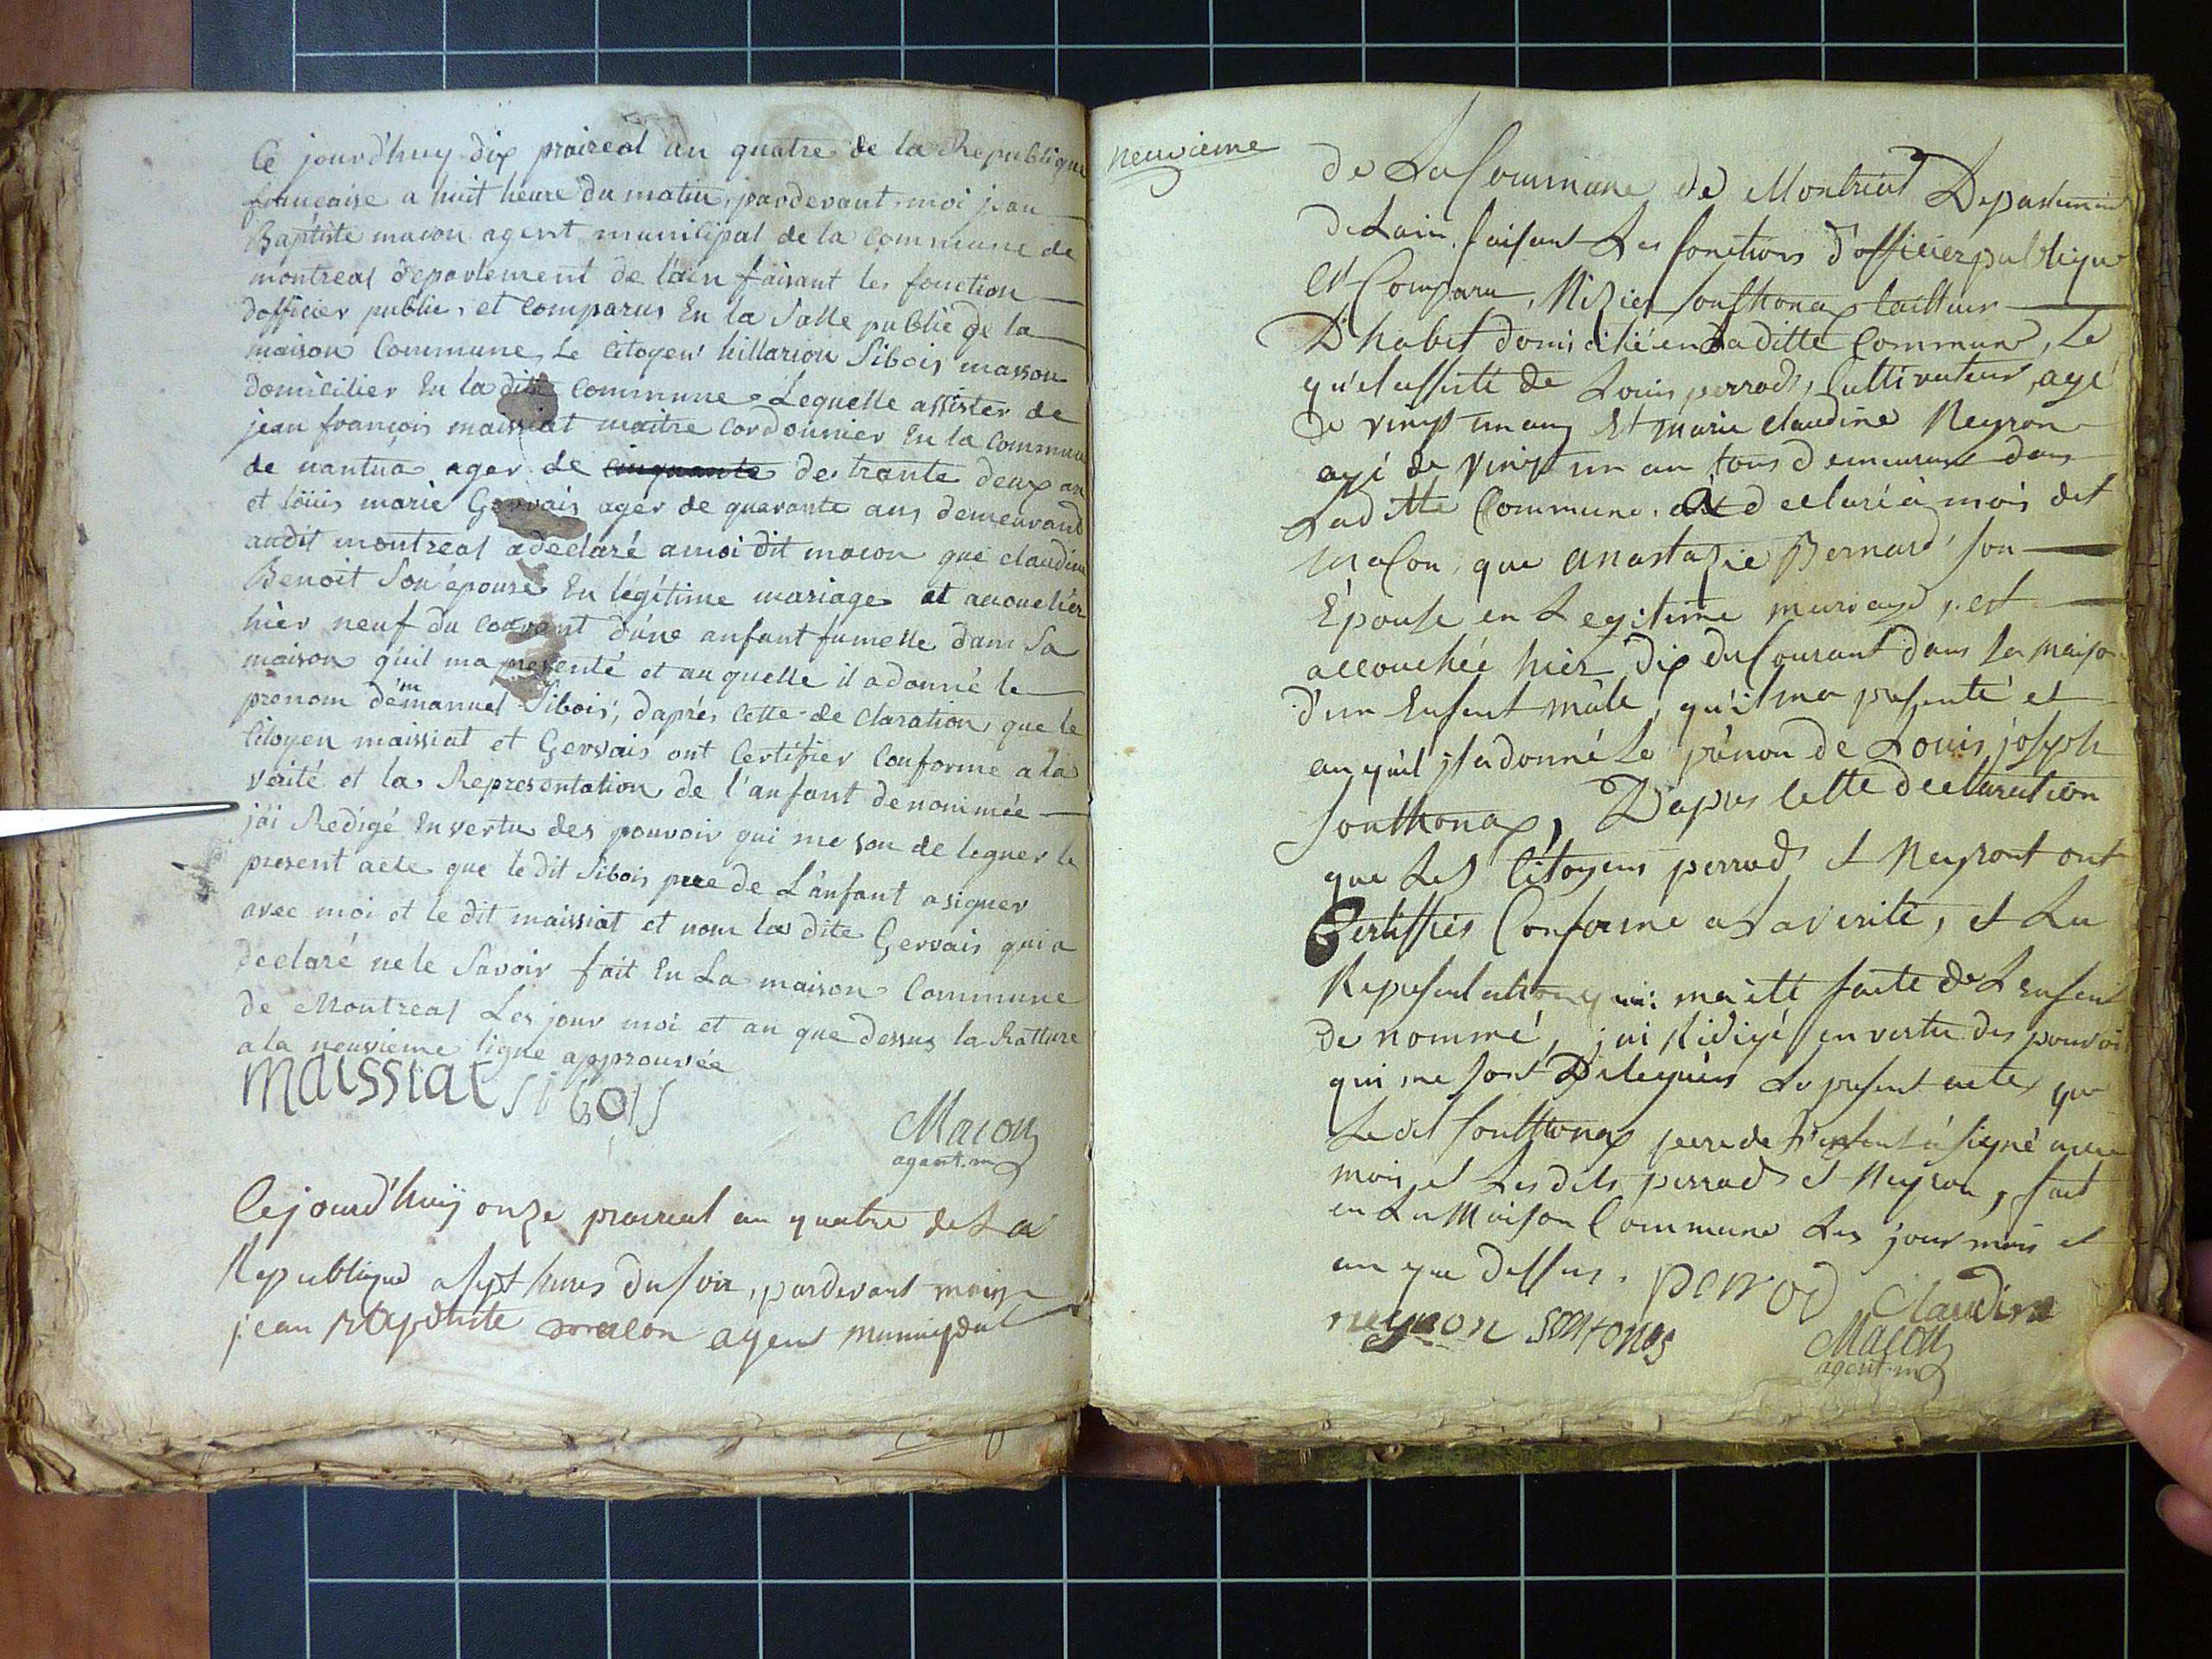 Ce jourd'huy dix praireal an quatre de la Republique
francaise a huit heure du matin, pardevant moi jean
Baptiste macon agent municipal de la Commune de
montreal departement de l'ain faisant les fonction
d'officier public, et comparus En la Salle public de la
maison Commune, Le Citoyen hillarion Sibois masson
Domicilier En la dite Commune Lequelle assister de
jean françois maissiat maitre Cordonnier En la Commune
de nantua ager de cinquante de trante deux an
et loüis marie Gervais ager de quarante ans demeurand
audit montreal a declaré a moi dit macon que claudine
Benoit Son épouse En légitime mariage at acouchér
hier neuf du courant d'une anfant fumelle dans Sa
maison qu'il ma presenté et au quelle il a donné le
prenom d'emmanuel Sibois, d'aprés Cette de Claration, que le
Citoyen maissiat et Gervais ont Certifier Conforme a la
vérité et la Representation de l'anfant denommée
j'ai Redigé En vertu des pouvoir qui me son de leguer le
present acte que le dit Sibois pere de L'anfant a signer
avec moi et le dit maissiat et nom la dite Gervais qui a
declaré ne le Savoir fait En La maison Commune
de Montreal Les jour moi et an que dessus la Ratture
a la neuvieme ligne approuvée
maissiat Sibois
Macon
agent. m
Cejourd'huy onze prairial an quatre de La
Republique a sept heures du soir, pardevant mois
jean Baptiste macon agent municipal
neuvieme
de La Commune de Montreal Departement
de Lain, faisant Les fonctions d'officier publique
Est Comparu, Nizier Southonax tailleur
D'habit domicilié en Laditte Commune, Le
qu'el assisté de Louis perrod, Cultivateur, agé
de vingt un ans Et marie claudine Neyron
agé de vingt un an tous demeurant dans
Laditte Commune. a declaré à mois dit
Macon, que anastazie Bernard, son
Épouse en Legitime mariage, est
accouchée hier dix du Courant dans sa maison
d'un Enfant mâle, qu'il ma presenté et
au qu'el il a donné Le prénon de Louis joseph
Southonax, D'apres Cette declaration
que Les Citoyens perrod et Neyront ont
Certiffiés Conforme a La verité, et La
Representation qui ma été faite de L'enfant
de nommé, j'ai Rédigé en vertu des pouvoir
qui me sont Delegués Le present acte, que
Le dit Southonax pere de L'enfant à signé avec
mois et Les dits perrod et Neyron, fait
en La Maison Commune Les jour mois et
an que dessus. perrod Claudine
neyron sontonas
Macon
agent. m